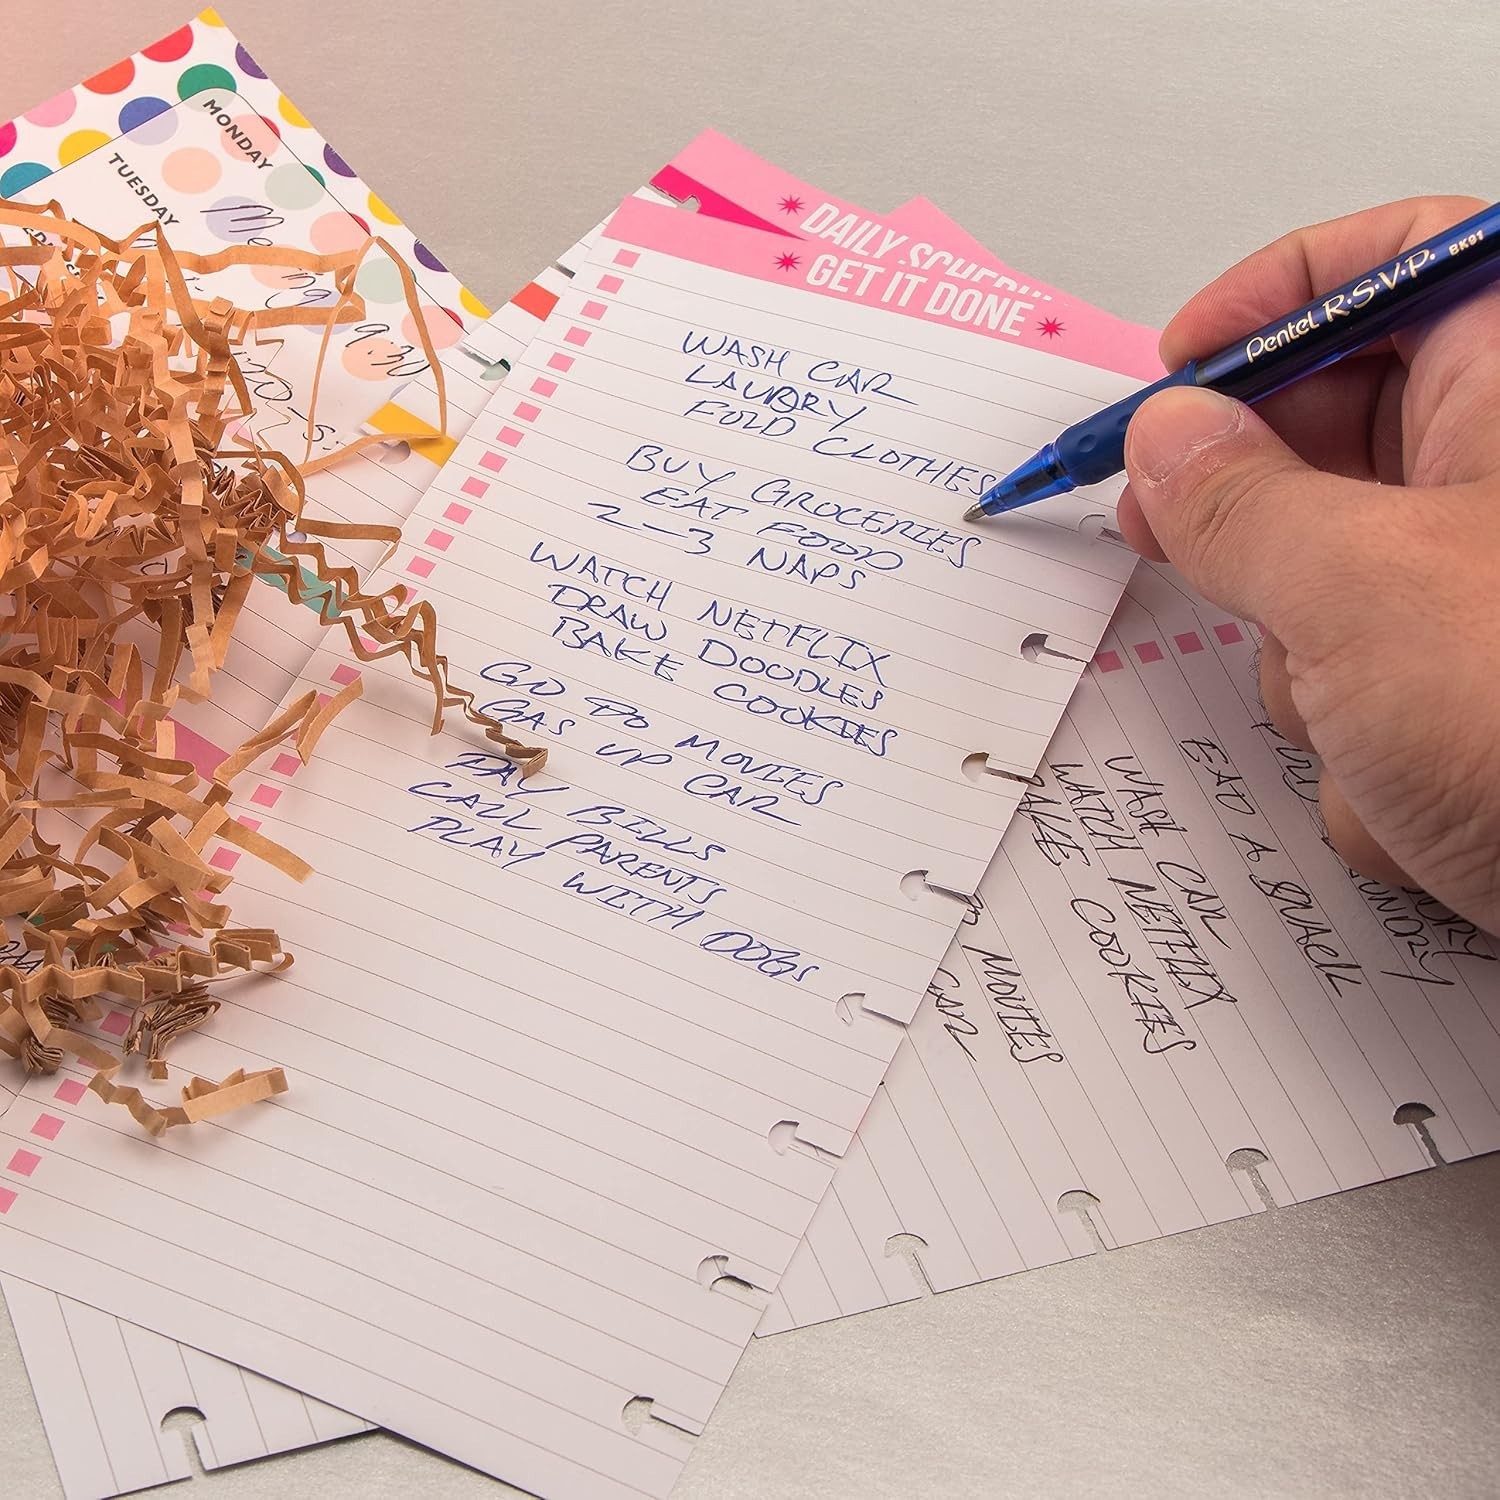 MONDAY
TUESDAY
DAILY SCHEDU
GET IT DONE
WASH CAR
LAUNDRY
FOLD CLOTHES
BUY GROCERIES
EAT FOOD
2-3 NAPS
WATCH NETFLIX
DRAW DOODLES
BAKE COOKIES
GO TO MOVIES
GAS UP CAR
PAY BILLS
CALL PARENTS
PLAY WITH DOGS
Pentel R.S.V.P. BK91
EAT A SNACK
WASH CAR
WATCH NETFLIX
BAKE COOKIES
MOVIES
CAR